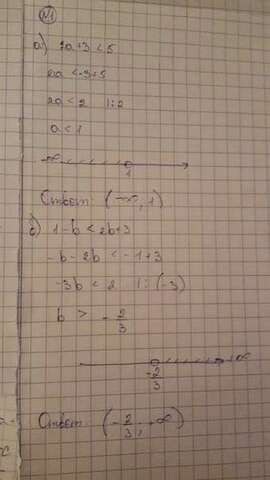 №1
а) 2a+3 < 5
2a < -3+5
2a < 2 |:2
a < 1
-∞
1
Ответ: (-∞, 1)
б) 1-b < 2b+3
-b-2b < -1+3
-3b < 2 |:(-3)
b > -2/3
∞
-2/3
Ответ: (-2/3; ∞)